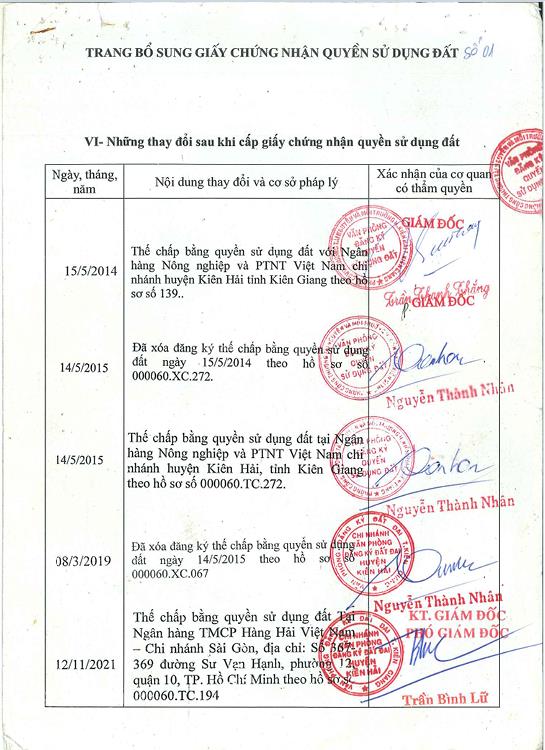 TRANG BỔ SUNG GIẤY CHỨNG NHẬN QUYỀN SỬ DỤNG ĐẤT Số 01
VI- Những thay đổi sau khi cấp giấy chứng nhận quyền sử dụng đất
Ngày, tháng, năm
Nội dung thay đổi và cơ sở pháp lý
Xác nhận của cơ quan
có thẩm quyền
15/5/2014
Thế chấp bằng quyền sử dụng đất với Ngân
hàng Nông nghiệp và PTNT Việt Nam chi
nhánh huyện Kiên Hải tỉnh Kiên Giang theo hồ
sơ số 139..
GIÁM ĐỐC
VĂN PHÒNG
ĐĂNG KÝ
QUYỀN
SỬ DỤNG ĐẤT
Trần Thanh Thắng
14/5/2015
Đã xóa đăng ký thế chấp bằng quyền sử dụng
đất ngày 15/5/2014 theo hồ sơ số
000060.XC.272.
GIÁM ĐỐC
VĂN PHÒNG
ĐĂNG KÝ
QUYỀN
SỬ DỤNG ĐẤT
Nguyễn Thành Nhân
14/5/2015
Thế chấp bằng quyền sử dụng đất tại Ngân
hàng Nông nghiệp và PTNT Việt Nam chi
nhánh huyện Kiên Hải, tỉnh Kiên Giang
theo hồ sơ số 000060.TC.272.
VĂN PHÒNG
ĐĂNG KÝ
QUYỀN
SỬ DỤNG ĐẤT
Nguyễn Thành Nhân
08/3/2019
Đã xóa đăng ký thế chấp bằng quyền sử dụng
đất ngày 14/5/2015 theo hồ sơ số
000060.XC.067
CHI NHÁNH
VĂN PHÒNG
ĐĂNG KÝ ĐẤT ĐAI
HUYỆN
KIÊN HẢI
Nguyễn Thành Nhân
12/11/2021
Thế chấp bằng quyền sử dụng đất Tại
Ngân hàng TMCP Hàng Hải Việt Nam
– Chi nhánh Sài Gòn, địa chỉ: Số 367-
369 đường Sư Vạn Hạnh, phường 12,
quận 10, TP. Hồ Chí Minh theo hồ sơ số
000060.TC.194
KT. GIÁM ĐỐC
PHÓ GIÁM ĐỐC
CHI NHÁNH
ĐĂNG KÝ ĐẤT ĐAI
HUYỆN
KIÊN HẢI
Trần Bình Lữ